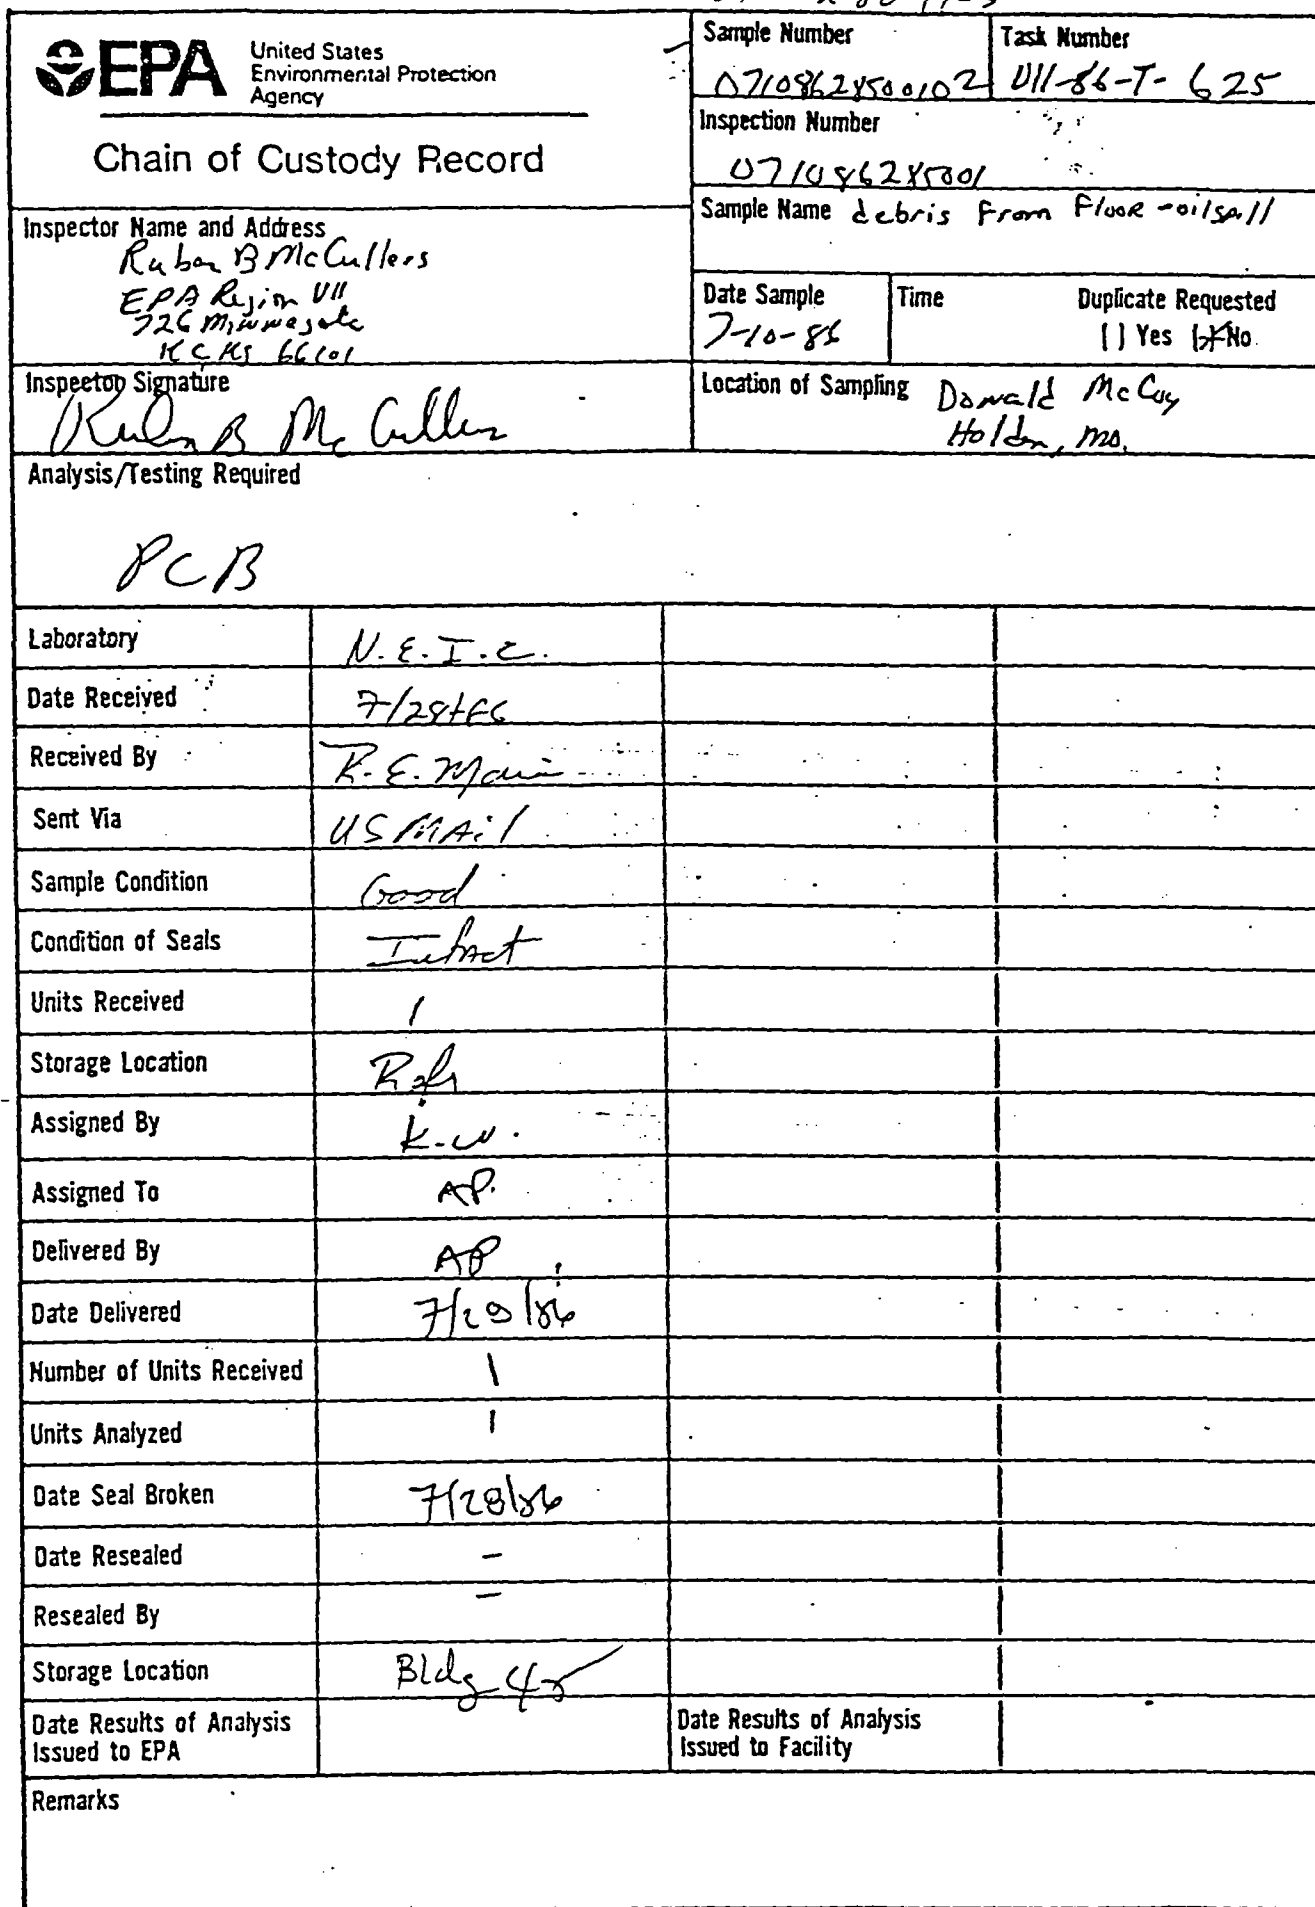 EPA
United States
Environmental Protection
Agency
Chain of Custody Record
Sample Number
07108628500102
Task Number
VII-86-T- 625
Inspection Number
071086285001
Inspector Name and Address
Ruben B McCullers
EPA Region VII
726 Minnesota
KC KS 66101
Sample Name debris From Floor - oil spill
Date Sample
7-10-86
Time
Duplicate Requested
[ ] Yes [X] No
Inspector Signature
Ruben B McCullers
Location of Sampling Donald McCoy
Holden, Mo.
Analysis/Testing Required
PCB
Laboratory N.E.I.C.
Date Received 7/28/86
Received By R.E.
Sent Via US MAil
Sample Condition Good
Condition of Seals Intact
Units Received 1
Storage Location Refr
Assigned By K.W.
Assigned To AP.
Delivered By AP
Date Delivered 7/28/86
Number of Units Received 1
Units Analyzed 1
Date Seal Broken 7/28/86
Date Resealed -
Resealed By -
Storage Location Bldg 45
Date Results of Analysis
Issued to EPA
Date Results of Analysis
Issued to Facility
Remarks